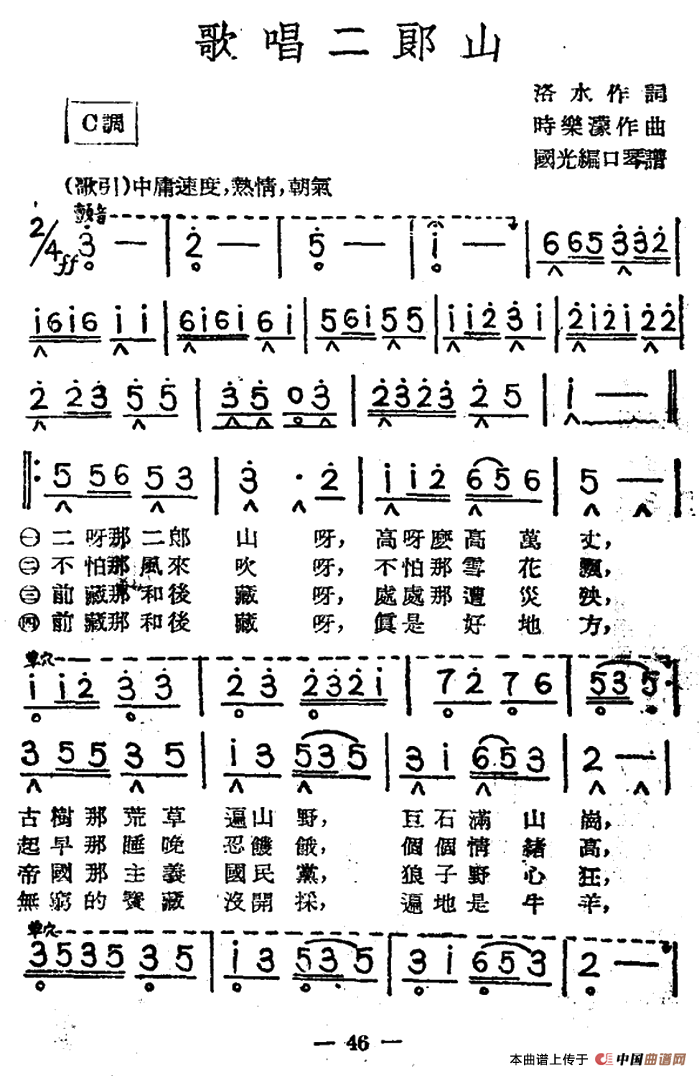 歌唱二郎山
洛水作詞
C調
時樂濛作曲
國光編口琴譜
(歌引)中庸速度,熱情,朝氣
顫音
2/4 ff 3 — | 2 — | 5 — | i — | 6 665 332 |
i6i6 i i | 6i6i 6 i | 5 6i 5 5 | i i2 3 i | 2i2i 2 2 |
2 23 5 5 | 3 5 0 3 | 2323 2 5 | i — ||
||: 5 56 5 3 | 3 · 2 | i i2 6 56 | 5 — |
㊀二呀那二郎 山 呀, 高呀麽高 萬 丈,
㊁不怕那風來 吹 呀, 不怕那雪 花 飄,
㊂前藏那和後 藏 呀, 處處那遭 災 殃,
㊃前藏那和後 藏 呀, 真是 好 地 方,
單穴
i i2 3 3 | 2 3 232i | 7 2 7 6 | 5 3 5
3 55 3 5 | i 3 5 35 | 3 i 6 53 | 2 — |
古樹那荒草 遍山 野, 巨石滿 山 崗,
起早那睡晚 忍饑 餓, 個個情 緒 高,
帝國那主義 國民 黨, 狼子野 心 狂,
無窮的寶藏 沒開 採, 遍地是 牛 羊,
單穴
3535 3 5 | i 3 5 3 5 | 3 i 6 5 3 | 2 — |
— 46 —
本曲谱上传于 中国曲谱网